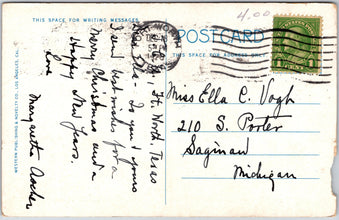 THIS SPACE FOR WRITING MESSAGES
POSTCARD
THIS SPACE FOR ADDRESS ONLY
4.00
Ft. Worth, Texas
Miss Ella - To you & yours
I send best wishes for a
Merry Christmas and a
Happy New Years.
Love
Margaretta
Miss Ella C. Vogh
210 S. Porter
Saginaw
Michigan
WESTERN PUBLISHING & NOVELTY CO., LOS ANGELES, CAL.
1